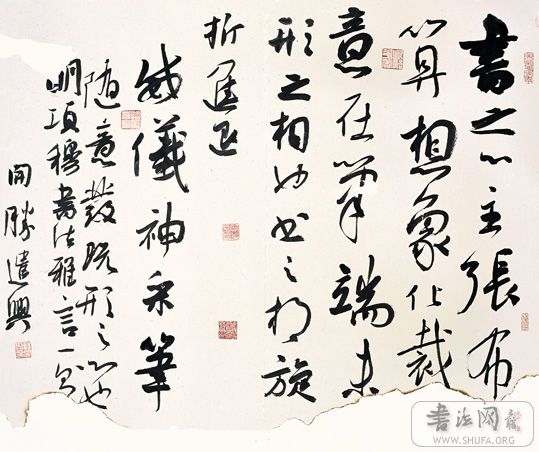 書之心主張布
算想象化裁
意在筆端未
形之相也書之相旋
折進退
威儀神采筆
隨意發既形之心也
明項穆書法雅言一
開勝遣興
書法网
WWW.SHUFA.ORG